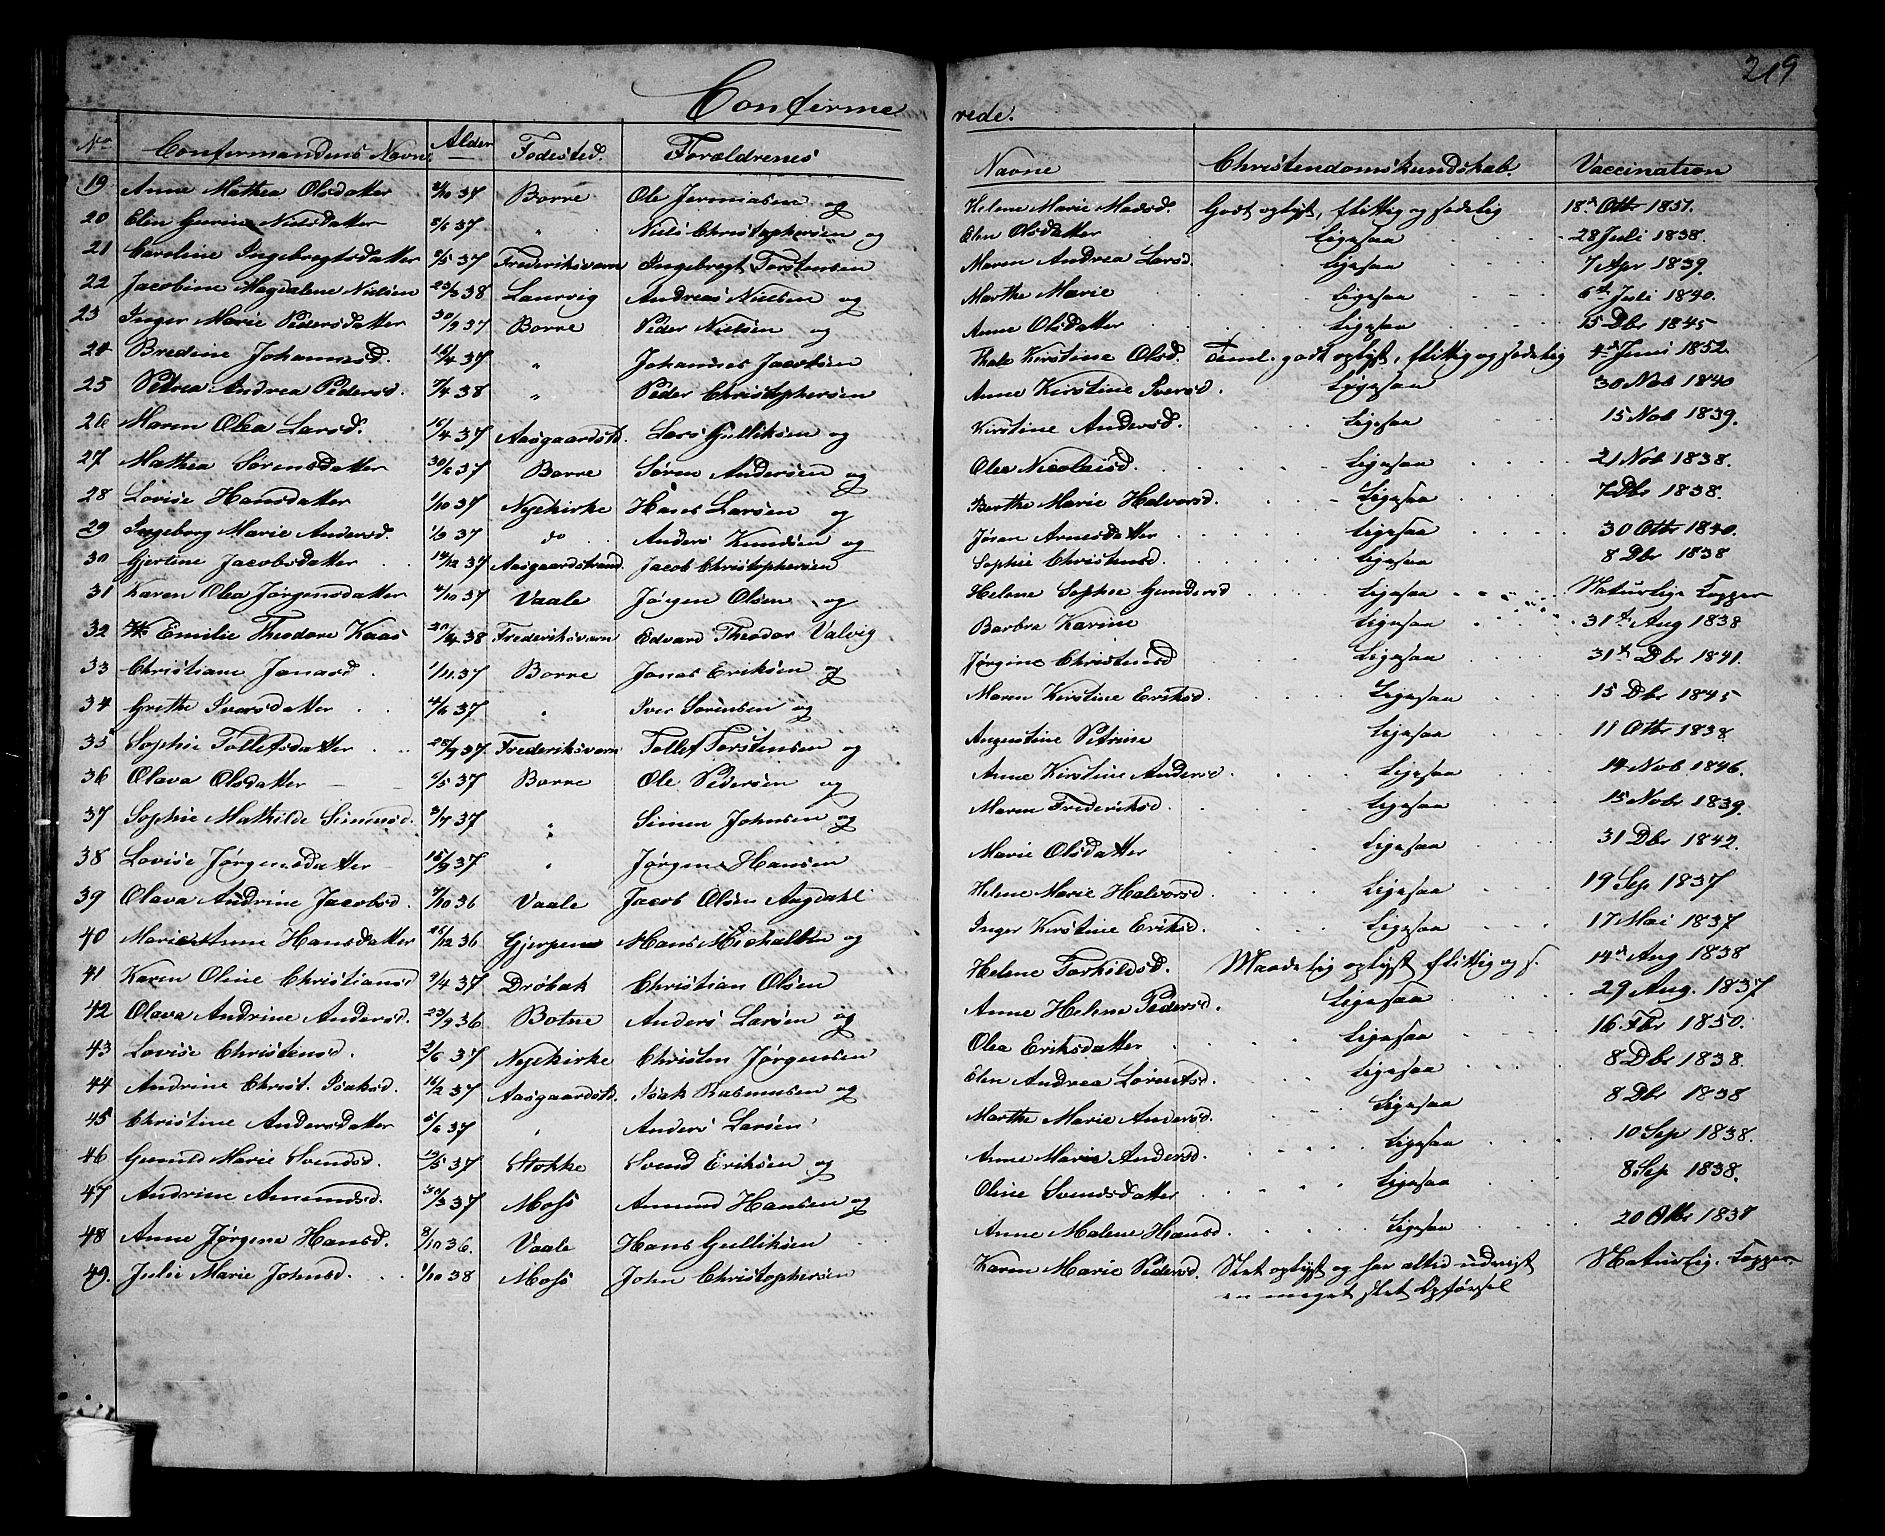 219
Confirme rede.
No Confirmandens Navne Alder Fødested. Forældrenes Navne Christendomskundskab. Vaccination
19 Anne Mathea Olsdatter 37 Borre Ole Jermiasen og Helene Marie Madsd. Godt oplyst, flittig og sædelig 18d Ottr 1851.
20 Elen Gurine Nielsdatter 8/6 37 " Niels Christophersen og Elen Olsdatter Ligesaa 28 Juli 1838.
21 Caroline Ingebregtsdatter 37 Frederiksværn Ingebregt Torstensen Maren Andrea Larsd. Ligesaa 7 Apr 1839.
22 Jacobine Magdalene Nielsen 23/3 38 Laurvig Andreas Nielsen og Marthe Marie Ligesaa 6te Juli 1840.
23 Inger Marie Pedersdatter 30/9 37 Borre Peder Nielsen og Anne Olsdatter Ligesaa 15 Dbr 1845
24 Bredine Johannesd. 37 " Johannes Jacobsen Thale Kirstine Olsd. Teml. godt oplyst, flittig og sædelig 4de Juni 1852.
25 Petrea Andrea Pedersd. 7/4 38 " Peder Christophersen Anne Kirstine Iversd. Ligesaa 30 Nob 1840
26 Maren Olea Larsd. 37 Aasgaardstd. Lars Gulliksen og Kirstine Andersd. Ligesaa 15 Nob 1839.
27 Mathea Sørensdatter 30/6 37 Borre Søren Andersen og Olea Nicolaisd. Ligesaa 21 Nob 1838.
28 Lovise Hansdatter 1/10 37 Nyekirke Hans Larsen og Berthe Marie Halvorsd. Ligesaa 7 Dbr 1838.
29 Ingeborg Marie Andersd. 1/9 37 do Anders Knudsen og Jøran Arnesdatter Ligesaa 30 Ottr 1840.
30 Gjertine Jacobsdatter 14/12 37 Aasgaardstrand. Jacob Christophersen Sophie Christensd. Ligesaa 8 Dbr 1838
31 Karen Olea Jørgensdatter 37 Vaale Jørgen Olsen og Helene Sophie Gundersd Ligesaa Naturlige Kopper
32 Emilie Theodore Kaas 20/4 38 Frederiksværn Edvard Theodor Valvig Barbra Karine Ligesaa 31te Aug 1838
33 Christiane Jonasd. 1/11 37 Borre Jonas Eriksen og Jørgine Christensd Ligesaa 31te Dbr 1841.
34 Grethe Iversdatter 4/6 37 " Iver Sørensen og Maren Kirstine Eriksd. Ligesaa 15 Dbr 1845
35 Sophie Tollefsdatter 37 Frederiksværn Tollef Torstensen og Augustine Petrine Ligesaa 11 Ottr 1838.
36 Olava Olsdatter 37 Borre Ole Pedersen og Anne Kirstine Andersd Ligesaa 14 Nob 1846.
37 Sophie Mathilde Simensd. 37 " Simen Johnsen og Maren Frederiksd. Ligesaa 15 Nobr 1839.
38 Lovise Jørgensdatter 15/9 37 " Jørgen Hansen Marie Olsdatter Ligesaa 31 Dbr 1842.
39 Olava Andrine Jacobsd. 7/10 36 Vaale Jacob Olsen Augdahl Helene Marie Halvorsd. Ligesaa 19 Sep 1837
40 Marie Anne Hansdatter 25/12 36 Gjerpene Hans Michalsen og Inger Kirstine Eriksd. Ligesaa 17 Mai 1837
41 Karen Oline Christiansd 9/4 37 Drøbak Christian Olsen Helene Torkildsd. Maadelig oplyst flittig og s. 14d Aug 1838
42 Olava Andrine Andersd. 23/9 36 Botne Anders Larsen og Anne Helene Pedersd. Ligesaa 29 Aug. 1837
43 Lovise Christensd. 2/6 37 Nyekirke Christen Jørgensen Olea Eriksdatter Ligesaa 16 Fbr 1850.
44 Andrine Christ. Isaksd. 16/2 37 Aasgaardstd. Isak Rasmusen og Elen Andrea Lorentsd. Ligesaa 8 Dbr 1838.
45 Christine Andersdatter 5/6 37 " Anders Larsen Marthe Marie Andersd Ligesaa 8 Dbr 1838
46 Gunild Marie Svendsd. 37 Stokke Svend Eriksen og Anne Marie Andersd. Ligesaa 10 Sep 1838.
47 Andrine Amundsd. 30/3 37 Moss Amund Hansen og Oline Svendsdatter Ligesaa 8 Sep 1838.
48 Anne Jørgine Hansd. 8/10 36. Vaale Hans Gulliksen Anne Malene Hansd. Ligesaa 20 Otbr 1838
49. Julie Marie Johnsd. 1/10 38 Moss John Christophersen Karen Marie Pedersd. Slet oplyst og har altid udviist Naturlig. Kopper
en meget slet Opførsel